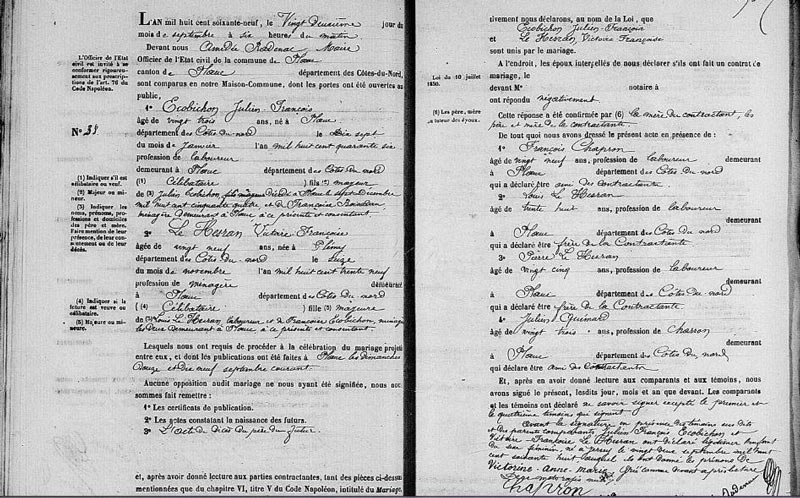 L'AN mil huit cent soixante-neuf, le Vingt Deuxième jour du
mois de septembre à six heures du matin
Devant nous Maire
Officier de l'État civil de la commune de Plœuc
canton de Plœuc département des Côtes-du-Nord,
sont comparus en notre Maison-Commune, dont les portes ont été ouvertes au
public,
1° Ecobichon Julien François
âgé de vingt trois ans, né à Plœuc
département des Côtes du nord le Dix sept
du mois de Janvier l'an mil huit cent quarante six
profession de laboureur
demeurant à Plœuc département des Côtes du nord
(1) Célibataire (2) fils majeur
de (3) Julien Ecobichon,
mil huit cent cinquante quatre et de Françoise
ménagère demeurant à Plœuc à ce présente et consentant.
2° Le Hesran Victoire Françoise
âgée de vingt neuf ans, née à Plémy
département des Côtes du nord le
du mois de novembre l'an mil huit cent trente neuf
profession de ménagère demeurant
à Plœuc département des Côtes du nord
(4) Célibataire fille (5) majeure
de (3) Le Hesran laboureur et de Françoise Ecobichon, ménagère
les deux demeurant à Plœuc à ce présents et consentant.
Lesquels nous ont requis de procéder à la célébration du mariage projeté
entre eux, et dont les publications ont été faites à Plœuc les dimanches
Douze et Dix neuf septembre courant.
Aucune opposition audit mariage ne nous ayant été signifiée, nous not
sommes fait remettre :
1° Les certificats de publication.
2° Les actes constatant la naissance des futurs.
3° L'acte de décès du père du futur
et, après avoir donné lecture aux parties contractantes, tant des pièces ci-dessus
mentionnées que du chapitre VI, titre V du Code Napoléon, intitulé du Mariage,
L'Officier de l'État
civil est invité à se
conformer rigoureu-
sement aux prescriptions
de l'art. 76 du
Code Napoléon.
N° 38
(1) Indiquer s'il est
célibataire ou veuf.
(2) Majeur ou mi-
neur.
(3) Indiquer les
noms, prénoms,
professions et domiciles
des père et mère.
Faire mention de
leur présence, de leur con-
sentement ou de leur
décès.
(4) Indiquer si la
future est veuve ou
célibataire.
(5) Majeure ou mi-
neure.
tivement nous déclarons, au nom de la Loi, que
Ecobichon Julien François
et Le Hesran Victoire Françoise
sont unis par le mariage.
A l'endroit, les époux interpellés de nous déclarer s'ils ont fait un contrat de
mariage, le
devant Me notaire à
ont répondu négativement
Cette réponse a été confirmée par (6) la mère du contractant, les
père et mère de la contractante.
De tout quoi nous avons dressé le présent acte en présence de :
1° François Chapron
âgé de vingt neuf ans, profession de laboureur demeurant
à Plœuc département des Côtes du nord
qui a déclaré être ami des Contractants.
2° Louis Le Hesran
âgé de trente huit ans, profession de laboureur
demeurant
à Plœuc département des Côtes du nord
qui a déclaré être frère de la Contractante
3° Pierre Le Hesran
âgé de vingt cinq ans, profession de laboureur
demeurant
à Plœuc département des Côtes du nord
qui a déclaré être frère de la Contractante
4° Julien Guimard
âgé de vingt trois ans, profession de Charron
demeurant
à Plœuc département des Côtes du nord,
qui déclare être ami des Contractants
Et, après avoir donné lecture aux comparants et aux témoins, nous
avons signé le présent, lesdits jour, mois et an que devant. Les comparants
et les témoins ont déclaré ne savoir signer excepté le premier et
le quatrième témoins qui signent
Avant la signature en présence des témoins sus dits
et des parents comparants Julien François Ecobichon et
Victoire Françoise Le Hesran ont déclaré légitimer l'enfant
du sexe féminin, né à le vingt deux septembre mil huit
cent soixante huit auquel ils ont donné les prénoms de
Victorine anne marie
Chapron
Loi du 10 juillet
1850.
(6) Les père, mère
ou tuteur des époux.